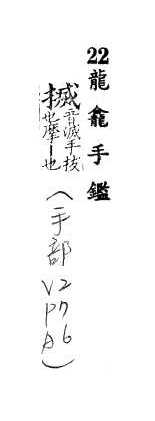 22 龍龕手鑑
搣音滅手拔也摩〡也
(手部V2P76A)